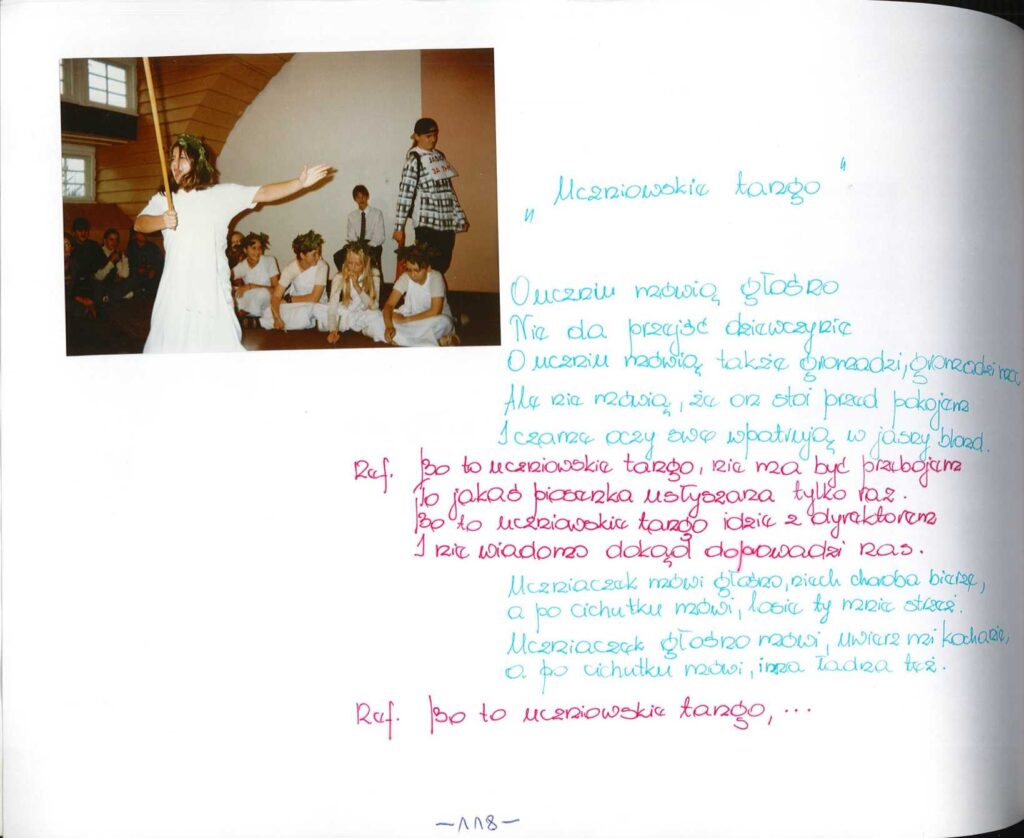 „ Uczniowskie tango "
O uczniu mówią głośno
Nie da przejść dziewczynie
O uczniu mówią także gromadzi, gromadzi
Ale nie mówią, że on stoi przed pokojem
I czarne oczy swe wpatrują w jasny blond.
Ref. Bo to uczniowskie tango, nie ma być przebojem
To jakaś piosenka usłyszana tylko raz.
Bo to uczniowskie tango idzie z dyrektorem
I nie wiadomo dokąd dopowadzi nas.
Uczniaczek mówi głośno, niech bierze,
a po cichutku mówi, losie ty mnie strzeż.
Uczniaczek głośno mówi, uwierz mi kochanie,
a po cichutku mówi, inna ładna też.
Ref. Bo to uczniowskie tango, ...
-118-